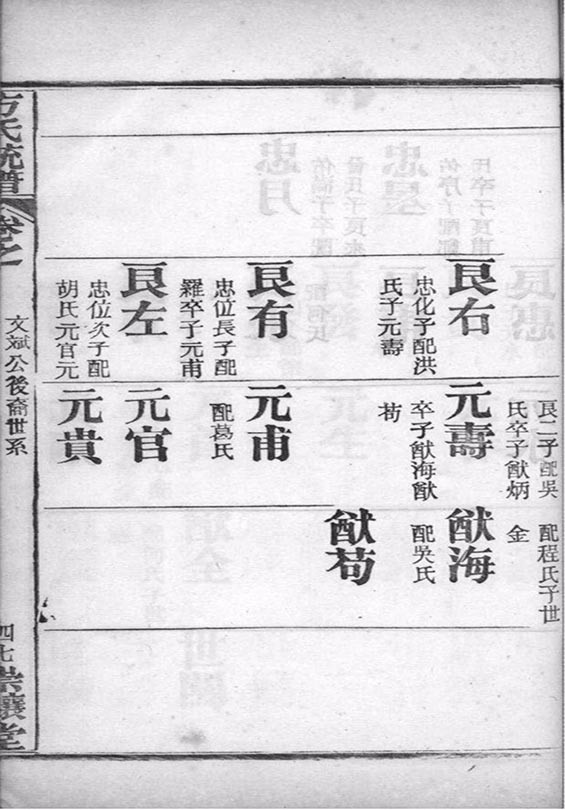 良二子配吳
氏卒子猷炳
配程氏子世
金
良右
忠化子配洪
氏子元壽
元壽
卒子猷海猷
苟
猷海
配吳氏
猷苟
良有
忠位長子配
羅卒子元甫
元甫
配葛氏
良左
忠位次子配
胡氏元官元
元官
元貴
方氏統譜
卷之
文斌公後裔世系
四七